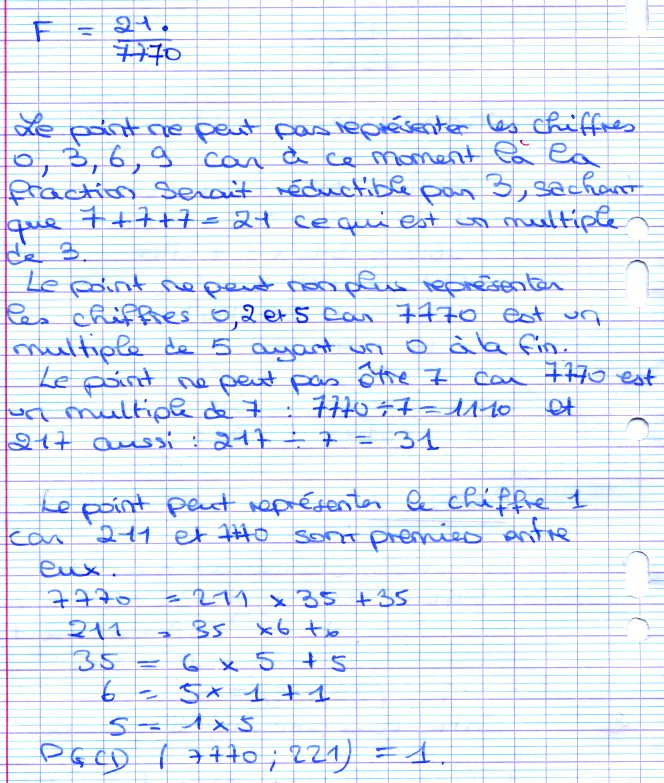 F = 21.
7770
Le point ne peut pas représenter les chiffres
0, 3, 6, 9 car à ce moment là la
fraction serait réductible par 3, sachant
que 7+7+7 = 21 ce qui est un multiple
de 3.
Le point ne peut non plus représenter
les chiffres 0, 2 et 5 car 7770 est un
multiple de 5 ayant un 0 à la fin.
Le point ne peut pas être 7 car 7770 est
un multiple de 7 : 7770 ÷ 7 = 1110 et
217 aussi : 217 ÷ 7 = 31
Le point peut représenter le chiffre 1
car 211 et 7770 sont premiers entre
eux.
7770 = 211 x 35 + 35
211 = 35 x 6 +
35 = 6 x 5 + 5
6 = 5 x 1 + 1
5 = 1 x 5
PGCD (7770 ; 221) = 1.